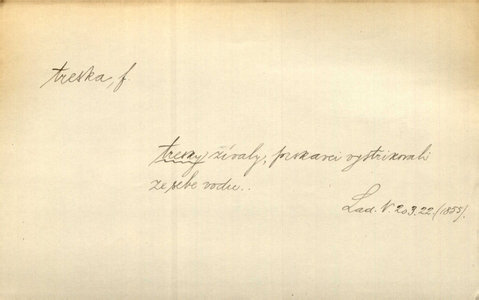 treska, f.
tresky zívaly, prskavci vystrikovali
ze sebe vodu..
Lad. N. 203.22 (1855).